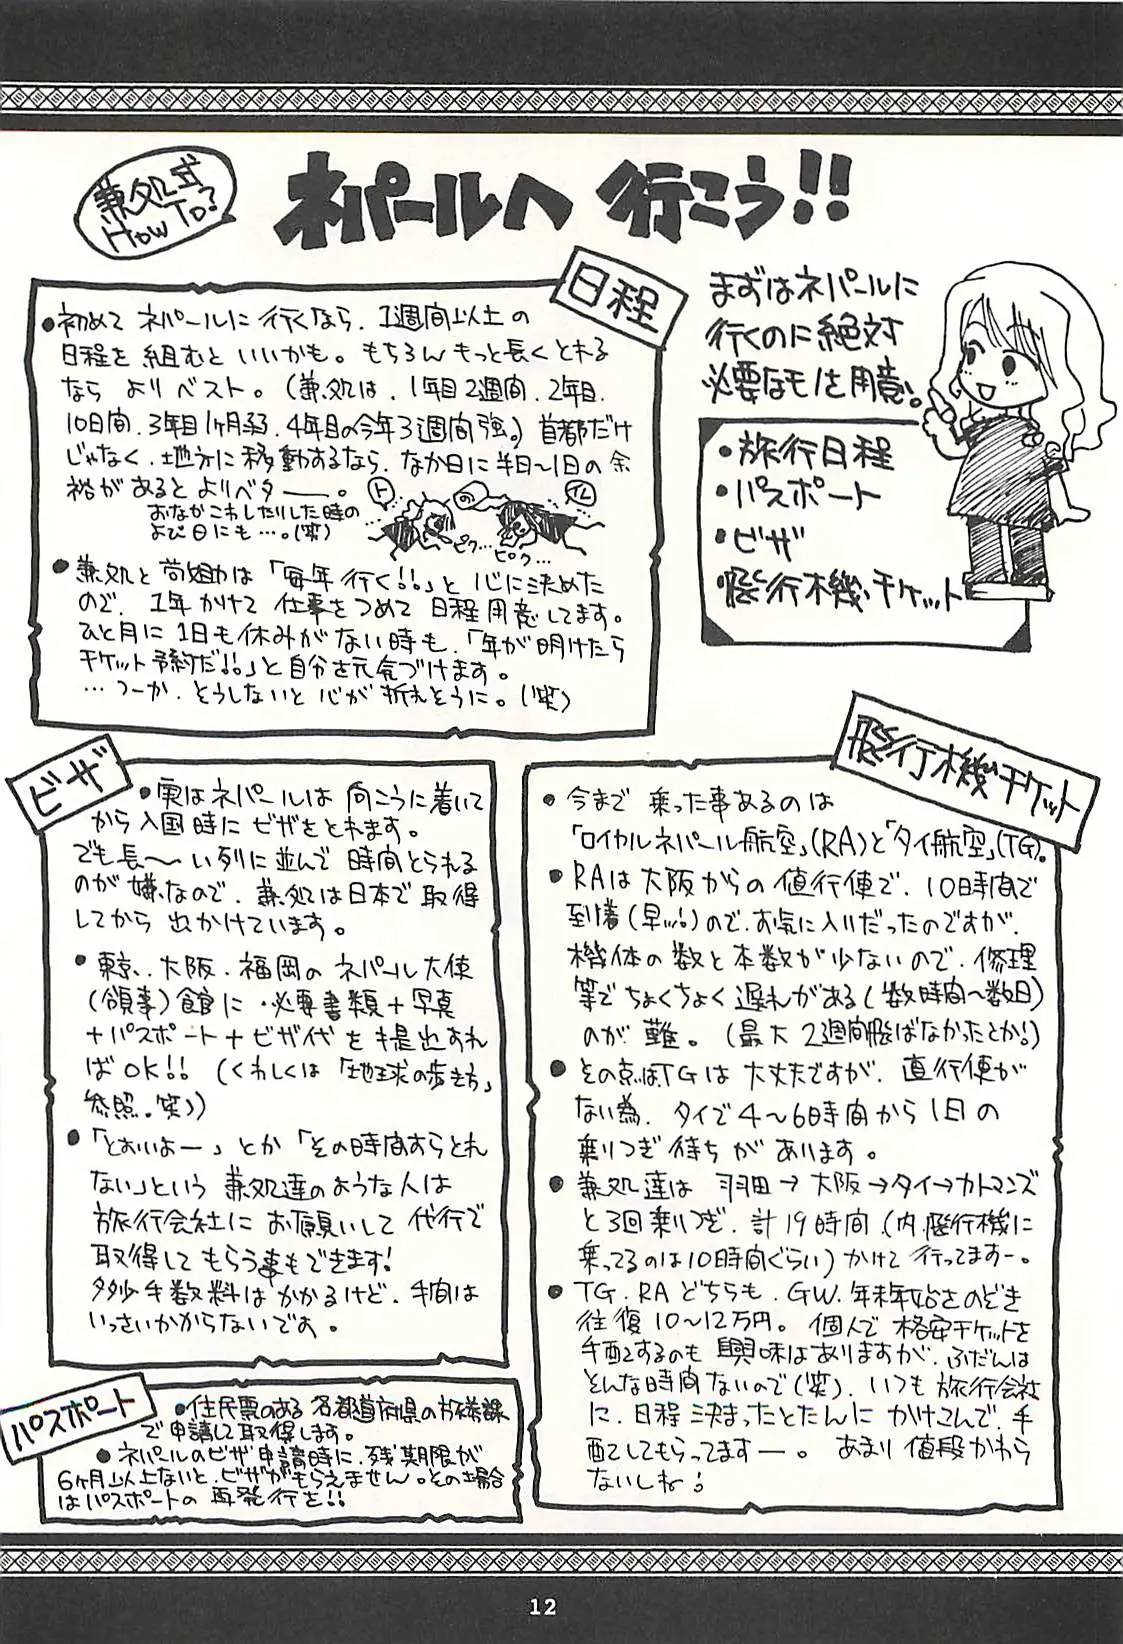 兼処式
HOW TO?
ネパールへ 行こう!!
まずはネパールに
行くのに絶対
必要なモノを用意。
・旅行日程
・パスポート
・ビザ
・飛行機チケット
日程
●初めて ネパールに 行くなら、1週間以上の
日程を 組むと いいかも。もちろん もっと長く とれる
なら よりベスト。(兼処は、1年目2週間、2年目、
10日間、3年目1ヶ月弱、4年目の今年3週間強。) 首都だけ
じゃなく、地方に移動するなら、なか日に半日〜1日の余
裕が あると よりベター。
おなかこわしたりした時の
よび日にも…。(笑)
ト
の
イレ
ピク…ピク…
●兼処と
は「毎年 行く!!」と 心に決めた
ので、1年かけて 仕事をつめて 日程用意してます。
ひと月に 1日も休みがない時も、「年が明けたら
チケット予約だ!!」と自分を元気づけます。
…つーか、そうしないと 心が 折れそうに。(笑)
ビザ
●実はネパールは 向こうに着いて
から入国時に ビザをとれます。
でも長〜い列に並んで 時間とられる
のが 嫌なので、兼処は日本で取得
してから 出かけています。
●東京、大阪、福岡の ネパール大使
(領事)館に、必要書類+写真
+パスポート+ビザ代を提出すれ
ば OK!! (くわしくは「地球の歩き方」
参照。笑))
●「とおいよー」とか「その時間すらとれ
ない」という 兼処達のような人は
旅行会社に お願いして 代行で
取得して もらう事もできます!
多少手数料は かかるけど、手間は
いっさいかからないです。
パスポート
●住民票のある 各都道府県の旅券課
で申請して取得します。
●ネパールのビザ申請時に、残期限が
6ヶ月以上ないと、ビザがもらえません。その場合
はパスポートの 再発行を!!
飛行機チケット
●今まで 乗った事あるのは
「ロイヤルネパール航空」(RA)と「タイ航空」(TG)。
●RAは大阪からの 値行便で、10時間で
到着(早ッ!)ので、お気に入りだったのですが、
機体の数と本数が少ないので、修理
等でちょくちょく遅れがある(数時間〜数日)
のが 難。(最大 2週間飛ばなかったとか!)
●その点TGは 大丈夫ですが、直行便が
ない為、タイで 4〜6時間から 1日の
乗りつぎ待ちが あります。
●兼処達は 羽田→大阪→タイ→カトマンズ
と3回乗りつぎ、計19時間(内、飛行機に
乗ってるのは10時間ぐらい)かけて 行ってますー。
●TG、RA どちらも、GW、年末年始さのぞき
往復10〜12万円。個人で 格安チケットを
手配するのも 興味はありますが、ふだんは
そんな時間ないので(笑)、いつも 旅行会社
に、日程決まったとたんに かけこんで、手
配してもらってますー。 あまり値段かわら
ないしね!
12